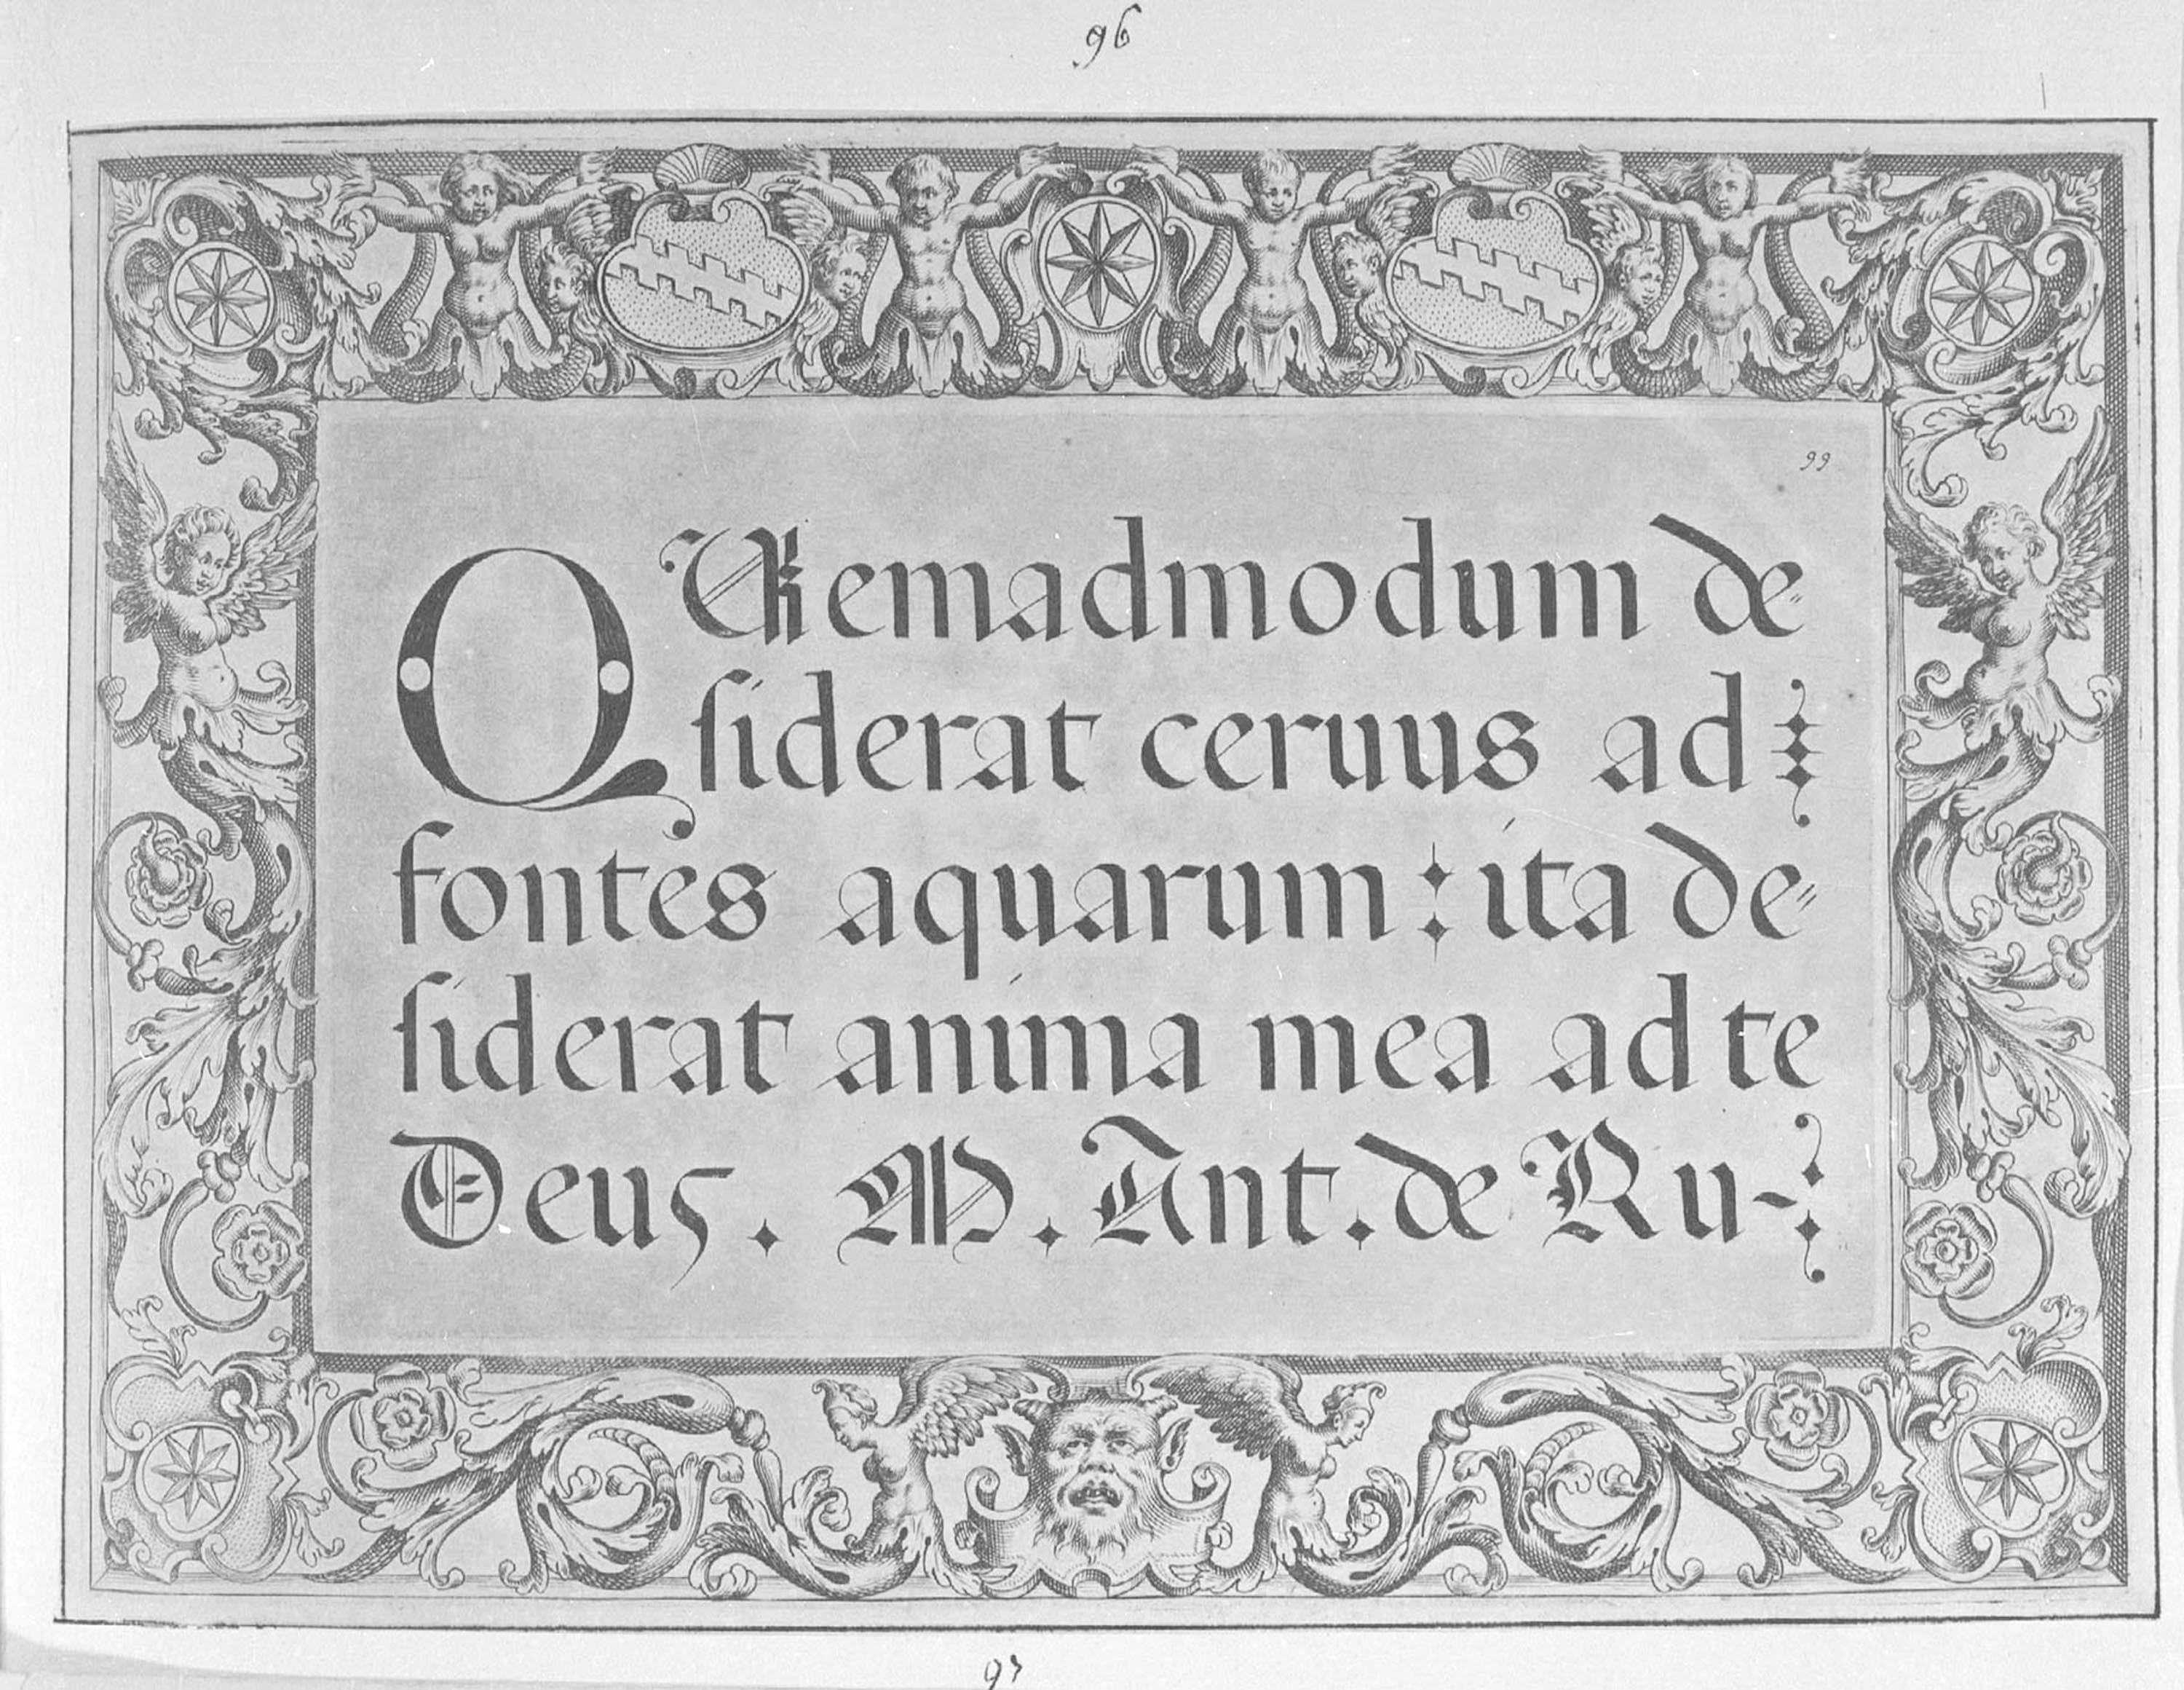 96
99
QUemadmodum de=
siderat ceruus ad
fontes aquarum: ita de=
siderat anima mea ad te
Deus. M. Ant. de Ru-
97